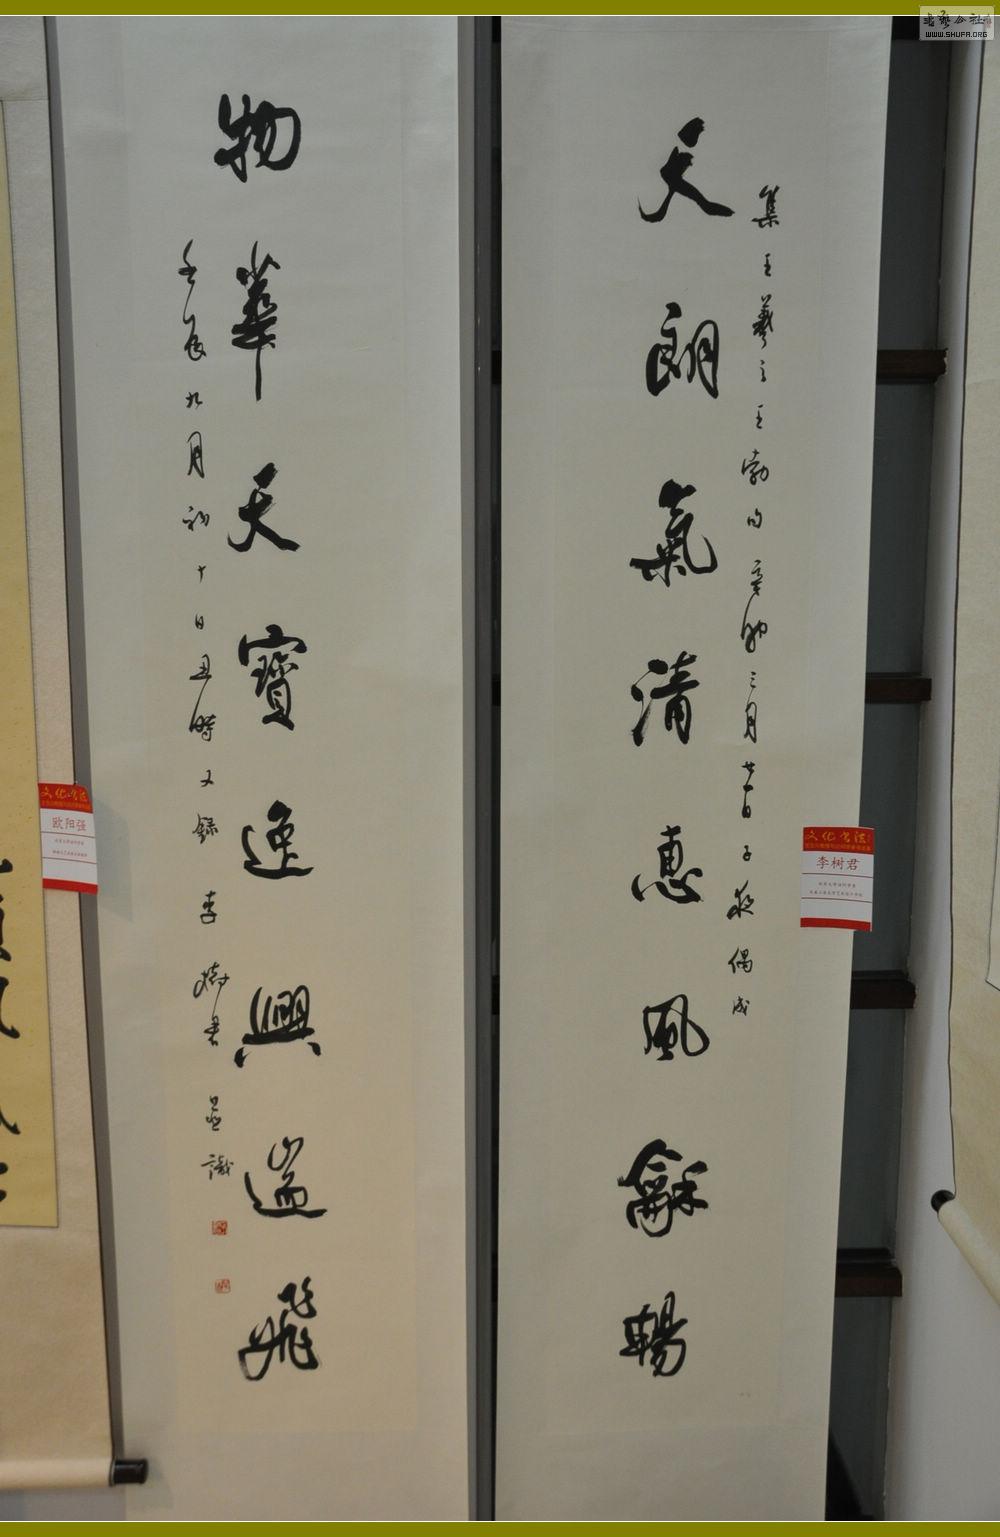 天朗氣清惠風龢暢
集王羲之王勃句辛卯三月廿日子夜偶成
物華天寶逸興遄飛
壬辰九月初十日丑時又錄李樹君并識
文化书法
李树君
文化书法
欧阳强
书艺公社
WWW.SHUFA.ORG